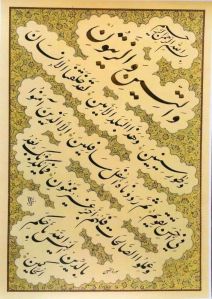 بسم الله الرحمن الرحیم
والتین والزیتون
وطور سینین وهذا البلد الامین لقد خلقنا الانسان
فی احسن تقویم ثم رددناه اسفل سافلین الا الذین آمنوا
وعملوا الصالحات فلهم اجر غیر ممنون فما یکذبک بعد
بالدین الیس الله باحکم الحاکمین